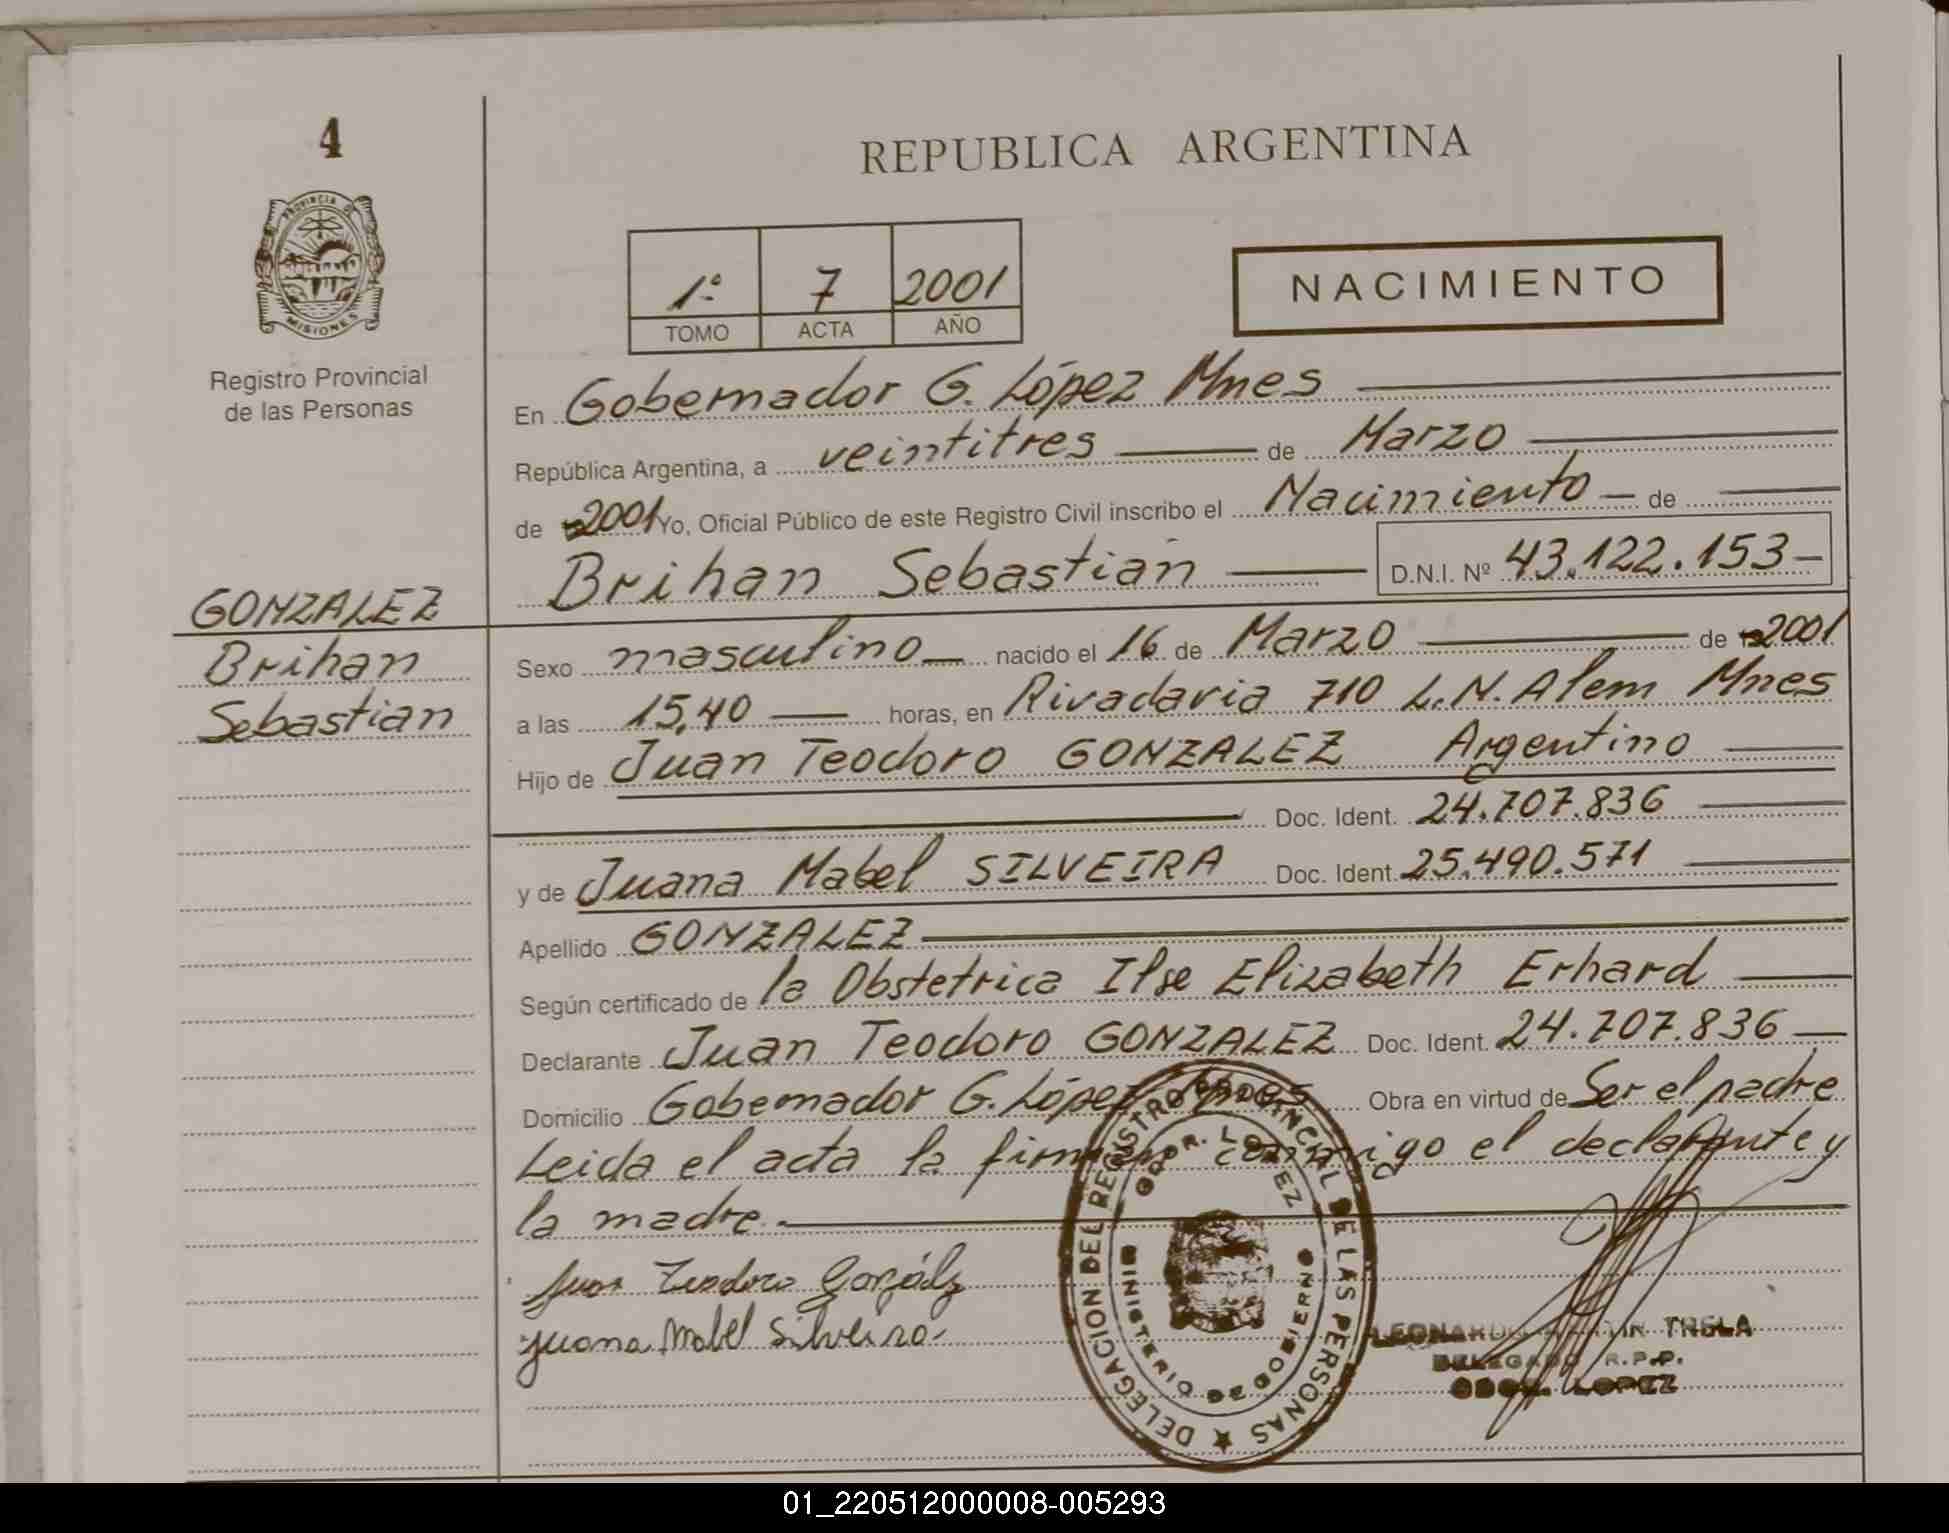 4
PROVINCIA DE
MISIONES
Registro Provincial
de las Personas
GONZALEZ
Brihan
Sebastian
REPUBLICA ARGENTINA
1º 7 2001
TOMO ACTA AÑO
NACIMIENTO
En Gobernador G. López Mnes
República Argentina, a veintitres de Marzo
de 2001 Yo, Oficial Público de este Registro Civil inscribo el Nacimiento de
Brihan Sebastian D.N.I. Nº 43.122.153
Sexo masculino nacido el 16 de Marzo de 2001
a las 15,40 horas, en Rivadavia 710 L.N. Alem Mnes
Hijo de Juan Teodoro GONZALEZ Argentino
Doc. Ident. 24.707.836
y de Juana Mabel SILVEIRA Doc. Ident. 25.490.571
Apellido GONZALEZ
Según certificado de la Obstetrica Ilse Elizabeth Erhard
Declarante Juan Teodoro GONZALEZ Doc. Ident. 24.707.836
Domicilio Gobernador G. López Mnes Obra en virtud de Ser el padre
Leida el acta la firman conmigo el declarante y
la madre.
Juan Teodoro González
Juana Mabel Silveira
DELEGACION DEL REGISTRO PROVINCIAL DE LAS PERSONAS
GDOR. LOPEZ
MINISTERIO DE GOBIERNO
LEONARDO MARTIN TRELA
DELEGADO R.P.P.
GDOR. LOPEZ
01_220512000008-005293